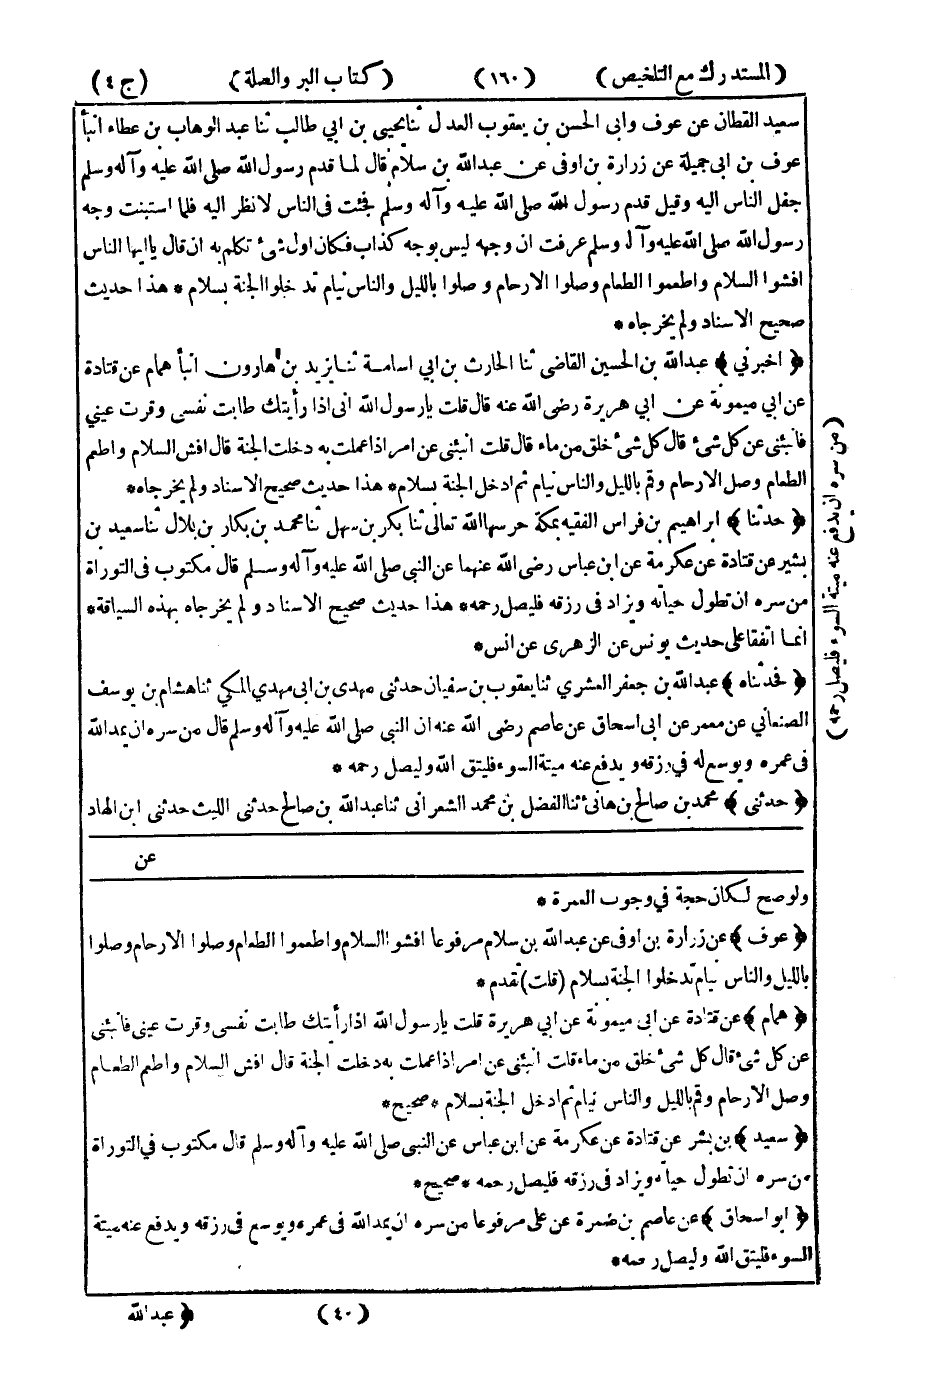 (المستدرك مع التلخيص) (١٦٠) (كتاب البر والصلة) (ج٤)
سعيد القطان عن عوف وابى الحسن بن يعقوب العدل ثنا يحيى بن ابي طالب ثنا عبد الوهاب بن عطاء انبأ
عوف بن ابى جميلة عن زرارة بن اوفى عن عبدالله بن سلام قال لما قدم رسول الله صلى الله عليه وآله وسلم
جفل الناس اليه وقيل قدم رسول الله صلى الله عليه وآله وسلم فجئت فى الناس لانظر اليه فلما استبنت وجه
رسول الله صلى الله عليه وآله وسلم عرفت ان وجهه ليس بوجه كذاب فكان اول شئ تكلم به ان قال ياايها الناس
افشوا السلام واطعموا الطعام وصلوا الارحام وصلوا بالليل والناس نيام تدخلوا الجنة بسلام * هذا حديث
صحيح الاسناد ولم يخرجاه *
﴿ اخبرني ﴾ عبدالله بن الحسين القاضى ثنا الحارث بن ابي اسامة ثنا يزيد بن هارون انبأ همام عن قتادة
عن ابي ميمونة عن ابي هريرة رضى الله عنه قال قلت يارسول الله انى اذا رأيتك طابت نفسى وقرت عيني
فانبئنى عن كل شئ قال كل شئ خلق من ماء قال قلت انبئنى عن امر اذا عملت به دخلت الجنة قال افش السلام واطعم
الطعام وصل الارحام وقم بالليل والناس نيام ثم ادخل الجنة بسلام * هذا حديث صحيح الاسناد ولم يخرجاه *
﴿ حدثنا ﴾ ابراهيم بن فراس الفقيه بمكة حرسها الله تعالى ثنا بكر بن سهل ثنا محمد بن بكار بن بلال ثنا سعيد بن
بشير عن قتادة عن عكرمة عن ابن عباس رضى الله عنهما عن النبى صلى الله عليه وآله وسلم قال مكتوب فى التوراة
من سره ان تطول حياته ويزاد فى رزقه فليصل رحمه * هذا حديث صحيح الاسناد ولم يخرجاه بهذه السياقة *
انما اتفقا على حديث يونس عن الزهرى عن انس *
﴿ فحدثناه ﴾ عبدالله بن جعفر العشري ثنا يعقوب بن سفيان حدثنى مهدى بن ابى مهدي المكي ثنا هشام بن يوسف
الصنعاني عن معمر عن ابى اسحاق عن عاصم رضى الله عنه ان النبى صلى الله عليه وآله وسلم قال من سره ان يمد الله
فى عمره ويوسع له في رزقه ويدفع عنه ميتة السوء فليتق الله وليصل رحمه *
﴿ حدثنى ﴾ محمد بن صالح بن هانئ ثنا الفضل بن محمد الشعرانى ثنا عبدالله بن صالح حدثنى الليث حدثنى ابن الهاد
عن
(من سره ان يدفع عنه ميتة السوء فليصل رحمه)
ولوصح لكان حجة في وجوب العمرة *
﴿ عوف ﴾ عن زرارة بن اوفى عن عبدالله بن سلام مرفوعا افشوا السلام واطعموا الطعام وصلوا الارحام وصلوا
بالليل والناس نيام تدخلوا الجنة بسلام (قلت) تقدم *
﴿ همام ﴾ عن قتادة عن ابى ميمونة عن ابي هريرة قلت يارسول الله اذا رأيتك طابت نفسى وقرت عينى فانبئنى
عن كل شئ قال كل شئ خلق من ماء قلت انبئنى عن امر اذا عملت به دخلت الجنة قال افش السلام واطعم الطعام
وصل الارحام وقم بالليل والناس نيام ثم ادخل الجنة بسلام * صحيح *
﴿ سعيد ﴾ بن بشر عن قتادة عن عكرمة عن ابن عباس عن النبى صلى الله عليه وآله وسلم قال مكتوب في التوراة
من سره ان تطول حياته ويزاد فى رزقه فليصل رحمه * صحيح *
﴿ ابو اسحاق ﴾ عن عاصم بن ضمرة عن على مرفوعا من سره ان يمد الله فى عمره ويوسع فى رزقه ويدفع عنه ميتة
السوء فليتق الله وليصل رحمه *
(٤٠) ﴿ عبدالله